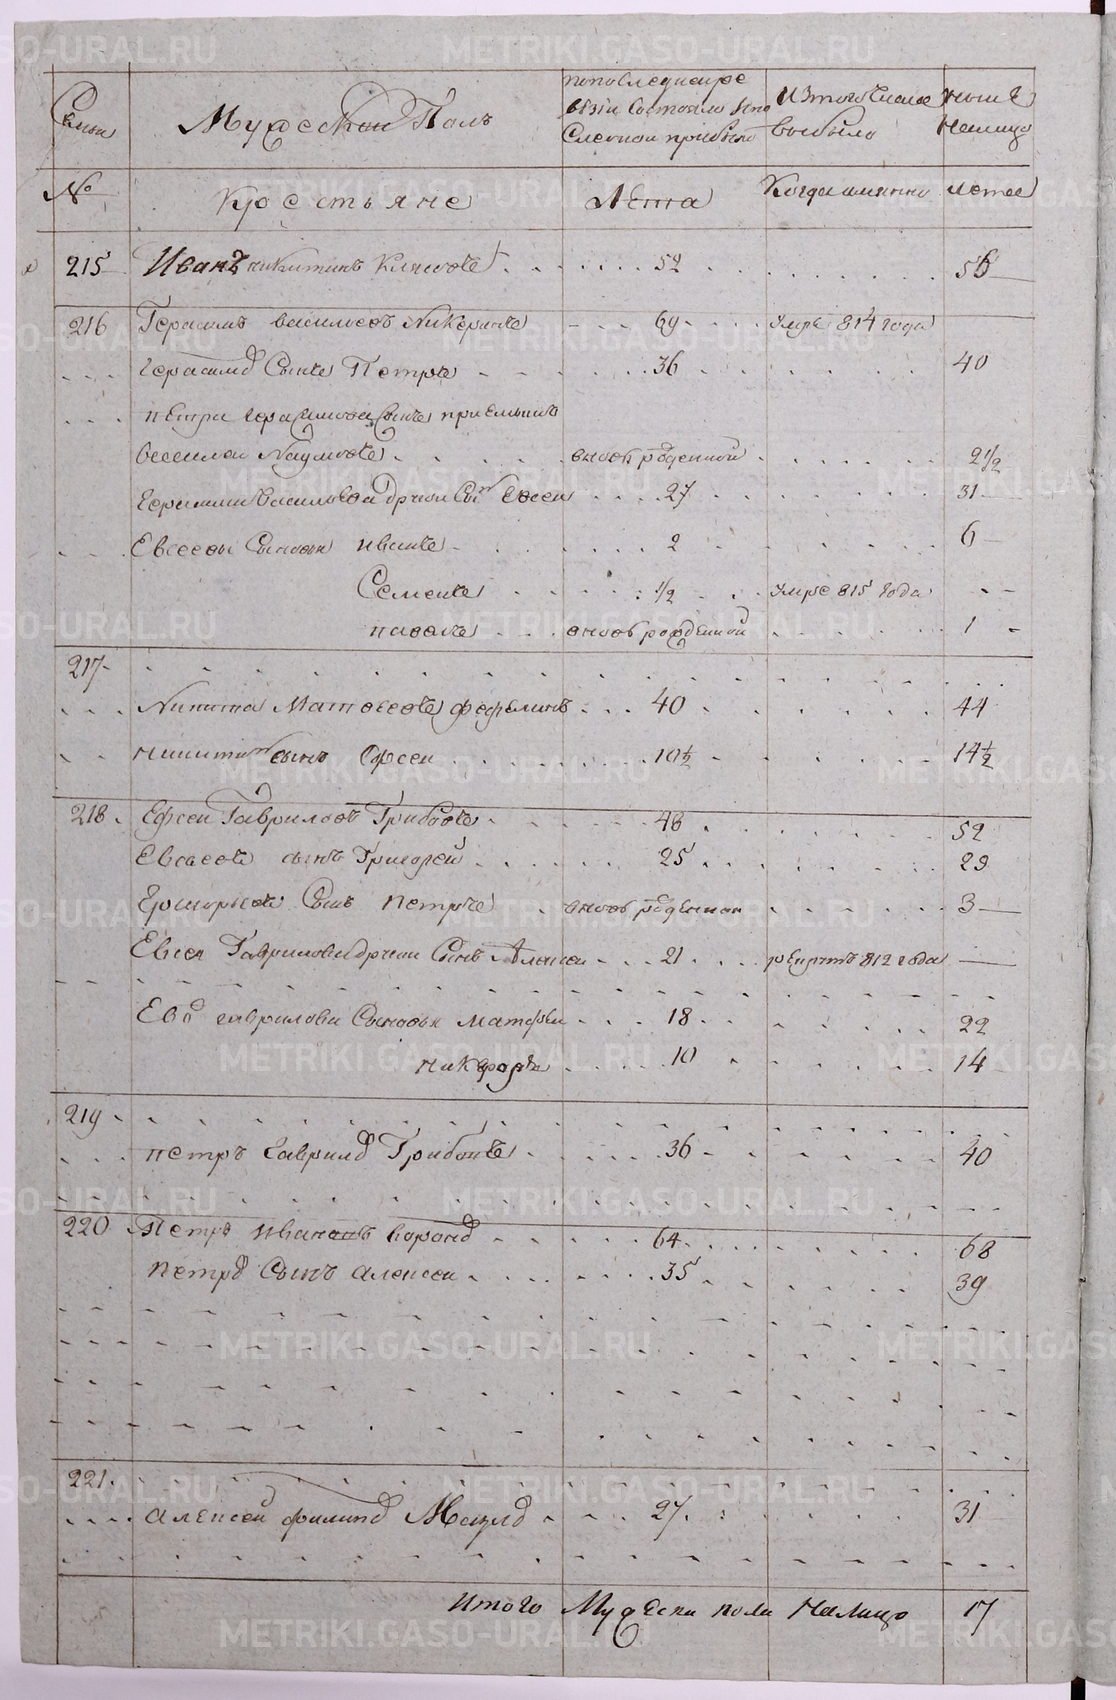 Семьи
Мужеской Полъ
по последней ре
визiи состояло и по
сле оной прибыло
Изтого числа
выбыло
ныне
Налицо
№
Крестьяне
Лета
Когда имянно
Лета
215 Иванъ никитинъ 52 56
216 Герасимъ васильевъ 69 умре 814 года
Герасимо Сынъ Петръ 36 40
петра Герасимова Сынъ приемышъ
василеи Наумовъ вновь рожденной 2 1/2
Герасима Василова Сынъ Евсеи 27 31
Евсеевы Сыновья иванъ 2 6
Семенъ 1/2 умре 815 года
павелъ вновь рожденной 1
217
Никита Матвеевъ 40 44
никитинъ сынъ Офсеи 10 1/2 14 1/2
218 Ефсеи Гавриловъ Грибовъ 48 52
Евсеевъ сынъ Григореи 25 29
Григорьевъ Сынъ петръ вновь рожденнои 3
Евсея Гаврилова другои Сынъ Алексеи 21 рекрутъ 812 года
Ево гаврилова Сыновья матфеи 18 22
никифоръ 10 14
219
петръ Гаврило Грибовъ 36 40
220 Петръ ивановъ 64 68
петро Сынъ алексеи 35 39
221
алексеи филипо 27 31
итого Мужеска пола налицо 17
METRIKI.GASO-URAL.RU